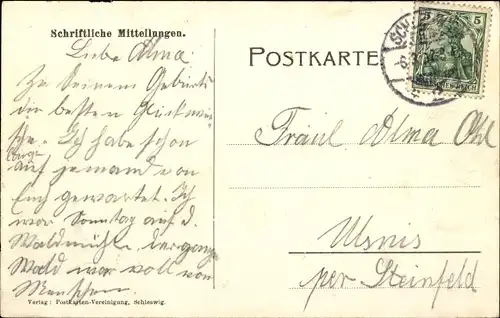 Schriftliche Mitteilungen.
Liebe Alma.
Zu Deinem Geburts
die besten Glückwün
sche. Ich habe schon
lange
auf jemand von
Euch gewartet. Ich
war Sonntag auf d.
Waldmühle. Der ganze
Wald war voll von
Menschen.
Verlag: Postkarten-Vereinigung, Schleswig.
POSTKARTE
5 5
Fräul Alma Ohl
Usnis
per Steinfeld